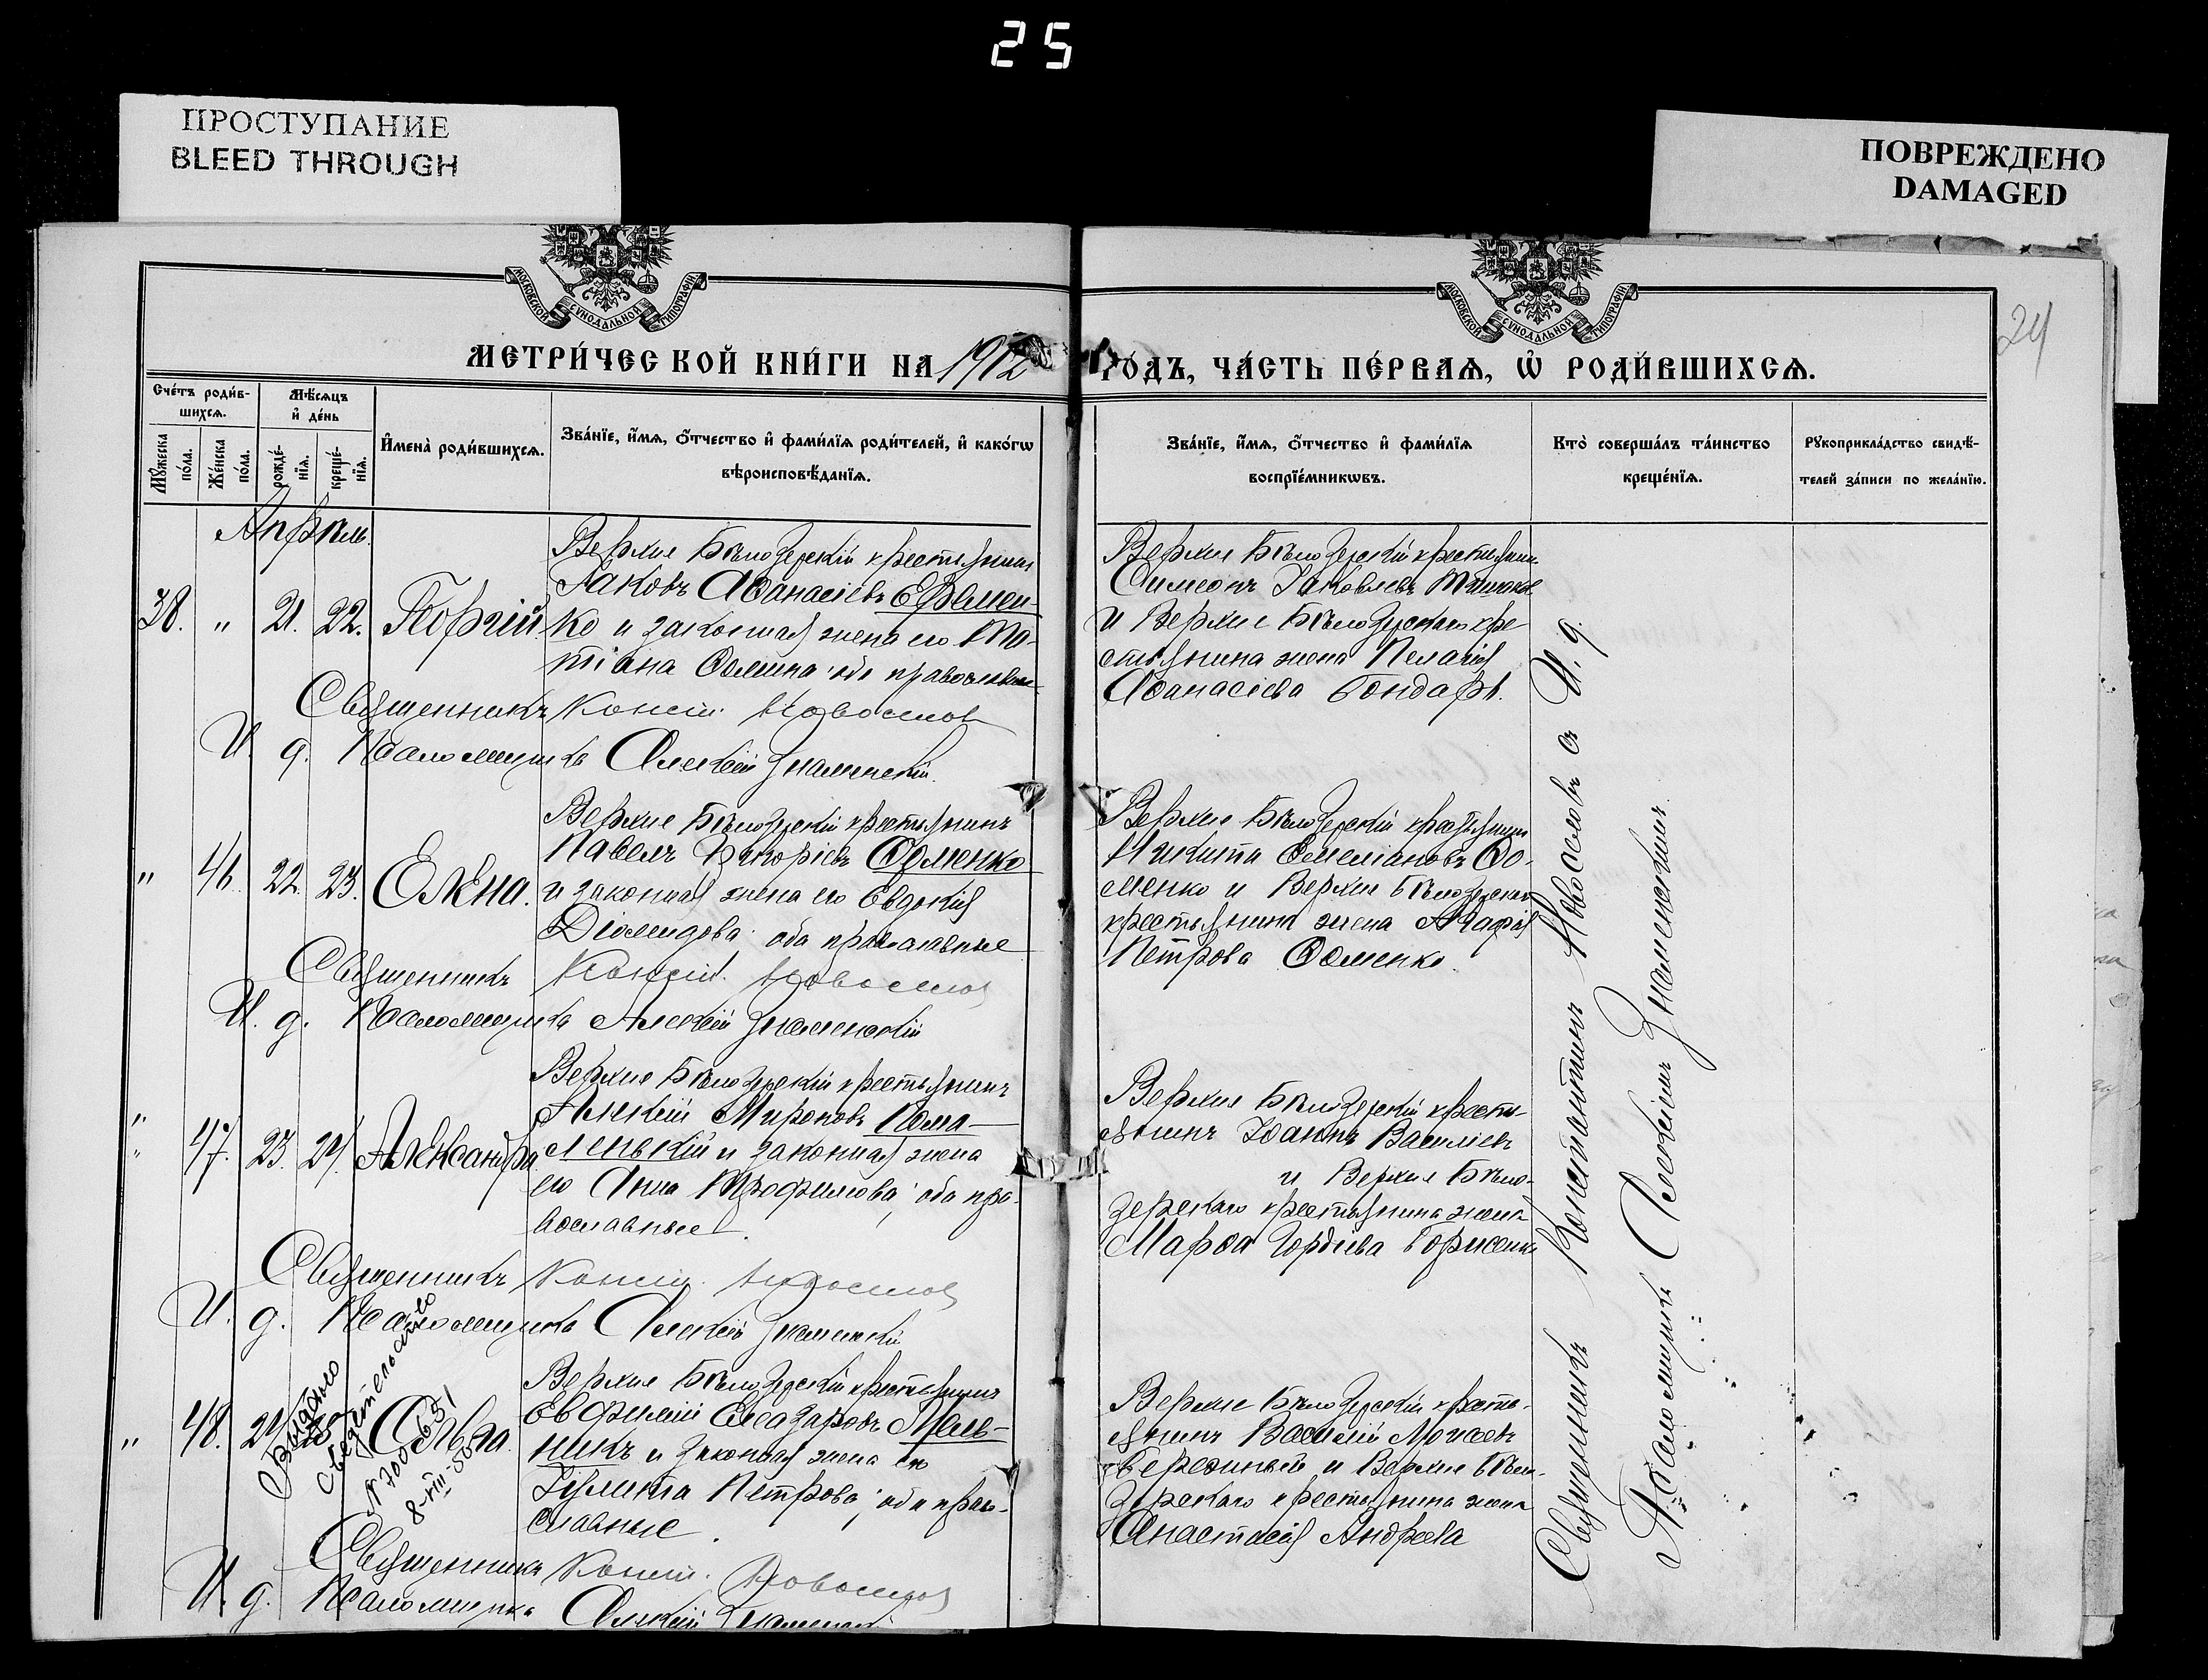 25
ПРОСТУПАНИЕ
BLEED THROUGH
ПОВРЕЖДЕНО
DAMAGED
МОСКОВСКОЙ СУНОДАЛЬНОЙ ТИПОГРАФІИ
МОСКОВСКОЙ СУНОДАЛЬНОЙ ТИПОГРАФІИ
24
МЕТРИ́ЧЕСКОЙ КНИ́ГИ НА 1912
ГО́ДЪ, ЧА́СТЬ ПЕ́РВАѦ, Ѡ҆ РОДИ́ВШИХСѦ.
Сче́тъ роди́в-
шихсѧ.
Мꙋ́жеска
по́ла.
Же́нска
по́ла.
Мѣ́сѧцъ
и҆ де́нь
рожде́-
нїѧ.
креще́-
нїѧ.
И҆мена̀ роди́вшихсѧ.
Зва́нїе, и҆́мѧ, ѻ҆́тчество и҆ фами́лїѧ роди́телей, и҆ како́гѡ
вѣроисповѣ́данїѧ.
Зва́нїе, и҆́мѧ, ѻ҆́тчество и҆ фами́лїѧ
воспрїе́мникѡвъ.
Кто̀ соверша́лъ та́инство
креще́нїѧ.
Рꙋкоприкла́дство свидѣ́-
телей за́писи по жела́нїю.
Апрѣль.
38. " 21. 22. Георгій.
Верхне Бѣлозерскій крестьянинъ
Іаковъ Аѳанасіевъ Ефимен-
ко и законная жена его Та-
тіана Ѳомина; оба православные
Верхне Бѣлозерскій крестьянинъ
Симеонъ Іаковлевъ
и Верхне Бѣлозерскаго кре-
стьянина жена Пелагія
Аѳанасіева Бондарь.
Священникъ Конст. Новоселов
И. д. Псаломщика Алексій Знаменскій.
" 46. 22. 23. Елена.
Верхне Бѣлозерскій крестьянинъ
Павелъ Ѳоменко
и законная жена его Евдокія
Діомидова; оба православные
Верхне Бѣлозерскій крестьянинъ
Никита Емеліановъ Ѳо-
менко и Верхне Бѣлозерскаго
крестьянина жена Агафія
Петрова Ѳоменко.
Священникъ Конст. Новоселов
И. д. Псаломщика Алексій Знаменскій
" 47. 23. 24. Александра.
Верхне Бѣлозерскій крестьянинъ
Алексій Мироновъ Кома-
ленькій и законная жена
его Анна Трофимова; оба пра-
вославные.
Верхне Бѣлозерскій кресть-
янинъ Іоаннъ Василіевъ
и Верхне Бѣло-
зерскаго крестьянина жена
Марѳа Гордіева Борисенко
Священникъ Конст. Новоселов
И. д. Псаломщика Алексій Знаменскій
" 48. 24 Ольга.
Выдано
свидетельство
N 700651
8-VIII-50
Верхне Бѣлозерскій крестьянинъ
Евфимій Елеазаровъ Мель-
никъ и законная жена его
Іулитта Петрова; оба право-
славные.
Верхне Бѣлозерскій кресть-
янинъ Василій Моисеевъ
и Верхне Бѣло-
зерскаго крестьянина жена
Анастасія Андреева
Священникъ Конст. Новоселов
И. д. Псаломщика Алексій Знаменскій
Священникъ Константинъ Новоселовъ съ И. д.
Псаломщика Алексіемъ Знаменскимъ